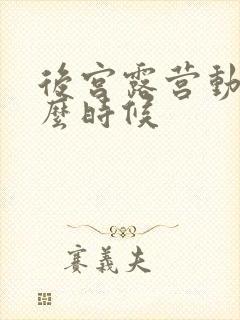 後宮露营動
麼時候
賽義夫